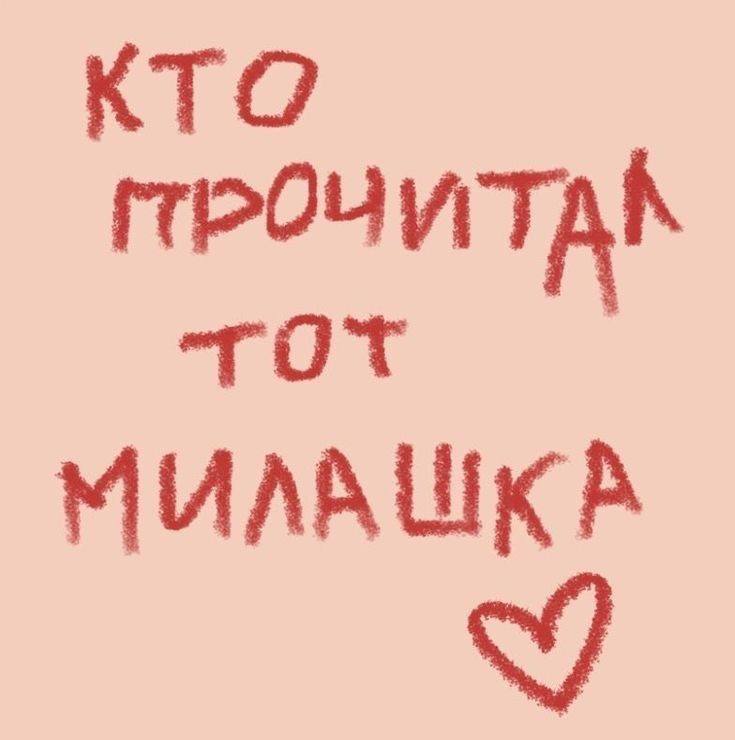 КТО
ПРОЧИТАЛ
ТОТ
МИЛАШКА